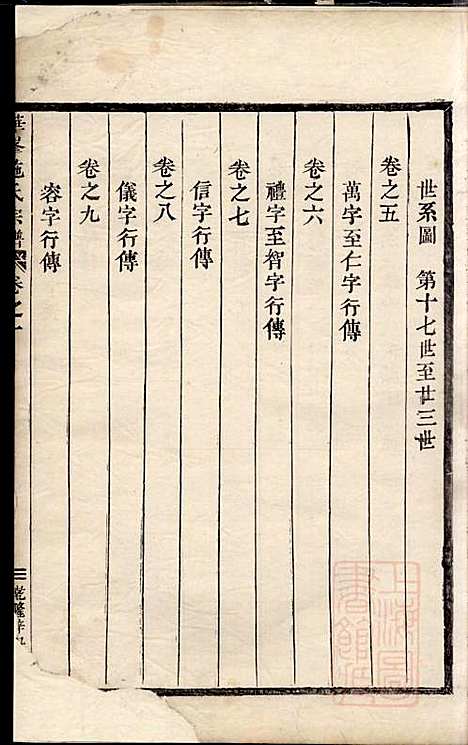 世系圖　第十七世至廿三世
卷之五
萬字至仁字行傳
卷之六
禮字至智字行傳
卷之七
信字行傳
卷之八
儀字行傳
卷之九
容字行傳
施氏宗譜　卷之
乾隆
上海圖書館藏